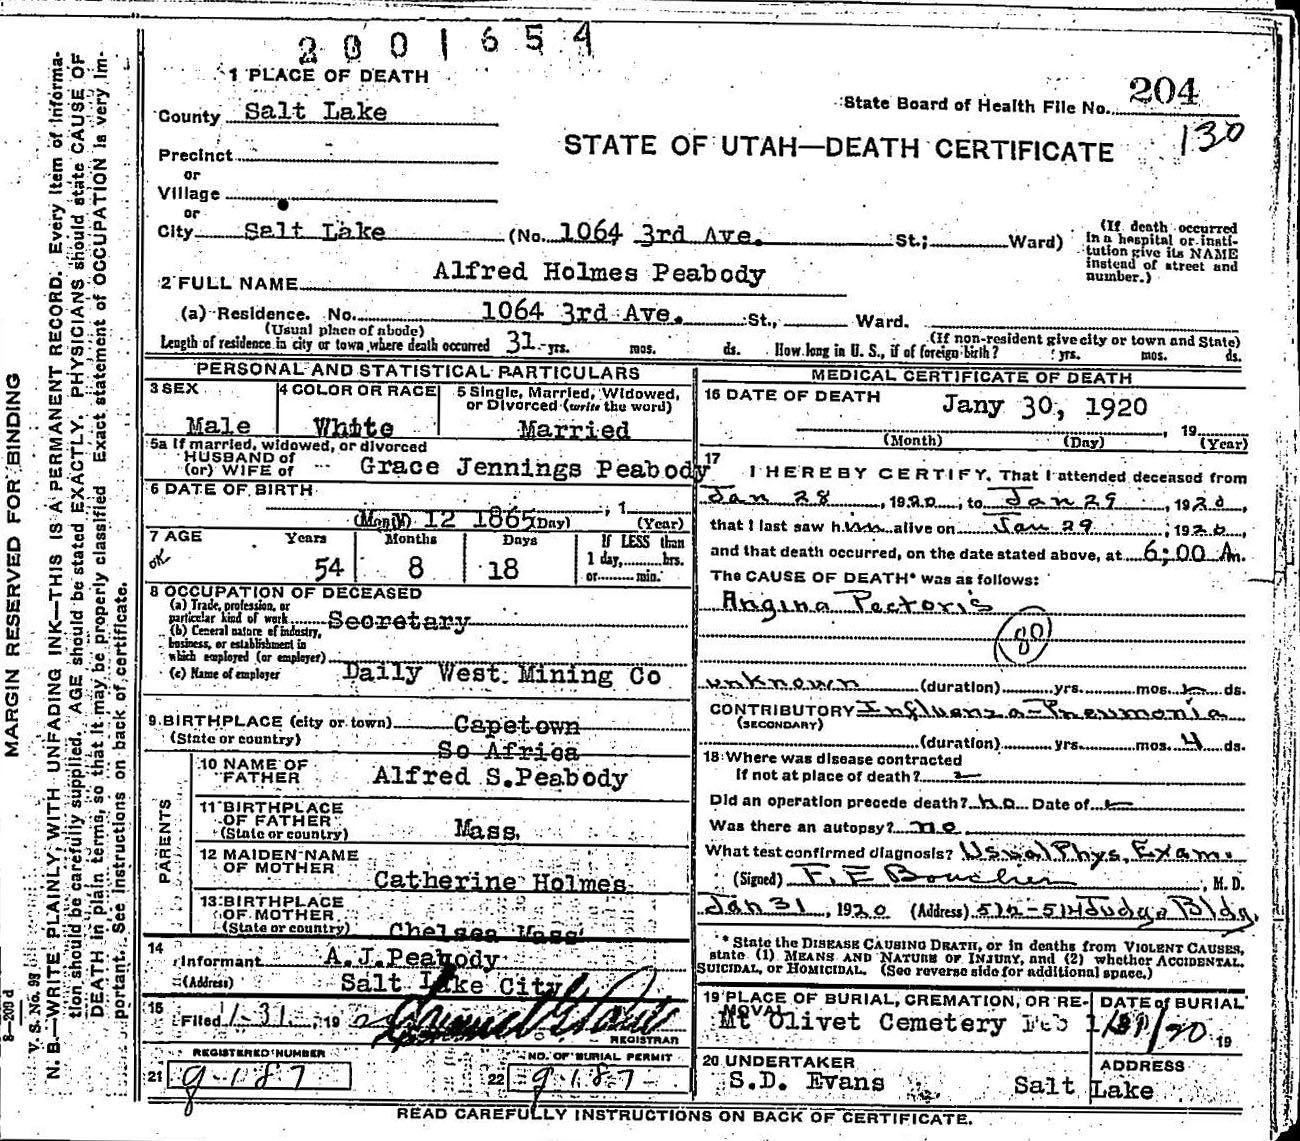 2001654
1 PLACE OF DEATH
State Board of Health File No. 204
130
County Salt Lake
STATE OF UTAH—DEATH CERTIFICATE
Precinct
or
Village
or
City Salt Lake (No. 1064 3rd Ave. St.; Ward)
(If death occurred in a hospital or insti-
tution give its NAME
instead of street and
number.)
2 FULL NAME Alfred Holmes Peabody
(a) Residence. No. 1064 3rd Ave. St., Ward.
(Usual place of abode) (If non-resident give city or town and State)
Length of residence in city or town where death occurred 31 yrs. mos. ds. How long in U. S., if of foreign birth? yrs. mos. ds.
PERSONAL AND STATISTICAL PARTICULARS
3 SEX
Male
4 COLOR OR RACE
White
5 Single, Married, Widowed,
or Divorced (write the word)
Married
5a If married, widowed, or divorced
HUSBAND of
(or) WIFE of Grace Jennings Peabody
6 DATE OF BIRTH
12 1865 , 1
(Month) (Day) (Year)
7 AGE
OK
Years Months Days
54 8 18
If LESS than
1 day, hrs.
or min.
8 OCCUPATION OF DECEASED
(a) Trade, profession, or
particular kind of work Secretary
(b) General nature of industry,
business, or establishment in
which employed (or employer)
(c) Name of employer Daily West. Mining Co
9 BIRTHPLACE (city or town) Capetown
(State or country) So Africa
PARENTS
10 NAME OF
FATHER Alfred S.Peabody
11 BIRTHPLACE
OF FATHER
(State or country) Mass.
12 MAIDEN NAME
OF MOTHER
Catherine Holmes
13 BIRTHPLACE
OF MOTHER
(State or country) Chelsea Mass
14
Informant A.J.Peabody
(Address) Salt Lake City
15
Filed 1-31, 192
REGISTRAR
REGISTERED NUMBER
21 g-187
NO. OF BURIAL PERMIT
22 g-187-
MEDICAL CERTIFICATE OF DEATH
16 DATE OF DEATH Jany 30, 1920
, 19
(Month) (Day) (Year)
17
I HEREBY CERTIFY, That I attended deceased from
Jan 28, 1920, to Jan 29, 1920,
that I last saw him alive on Jan 29, 1920,
and that death occurred, on the date stated above, at 6:00 Am.
The CAUSE OF DEATH* was as follows:
Angina Pectoris
80
unknown (duration) yrs. mos. ds.
CONTRIBUTORY Influenza-Pneumonia
(SECONDARY)
(duration) yrs. mos. 4 ds.
18 Where was disease contracted
If not at place of death?
Did an operation precede death? no Date of
Was there an autopsy? no
What test confirmed diagnosis? Usual Phys. Exam.
(Signed) F. E Boucher, M. D.
Jan 31, 1920 (Address) 512-514 Judge Bldg.
* State the DISEASE CAUSING DEATH, or in deaths from VIOLENT CAUSES,
state (1) MEANS AND NATURE OF INJURY, and (2) whether ACCIDENTAL,
SUICIDAL, or HOMICIDAL. (See reverse side for additional space.)
19 PLACE OF BURIAL, CREMATION, OR RE-
MOVAL
Mt Olivet Cemetery
DATE of BURIAL
Feb 1/31/20 19
20 UNDERTAKER
S.D. Evans
ADDRESS
Salt Lake
READ CAREFULLY INSTRUCTIONS ON BACK OF CERTIFICATE.
MARGIN RESERVED FOR BINDING
V. S. No. 99
8—200 d
N. B.—WRITE PLAINLY, WITH UNFADING INK—THIS IS A PERMANENT RECORD. Every item of informa-
tion should be carefully supplied. AGE should be stated EXACTLY. PHYSICIANS should state CAUSE OF
DEATH in plain terms, so that it may be properly classified. Exact statement of OCCUPATION is very im-
portant. See instructions on back of certificate.